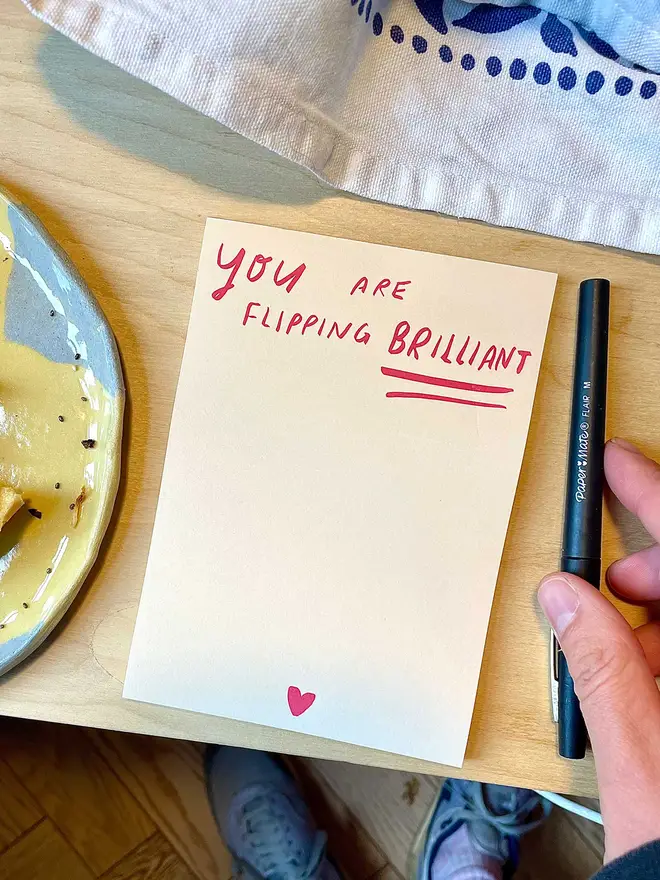 You ARE
FLIPPING BRILLIANT
Paper Mate® FLAIR M